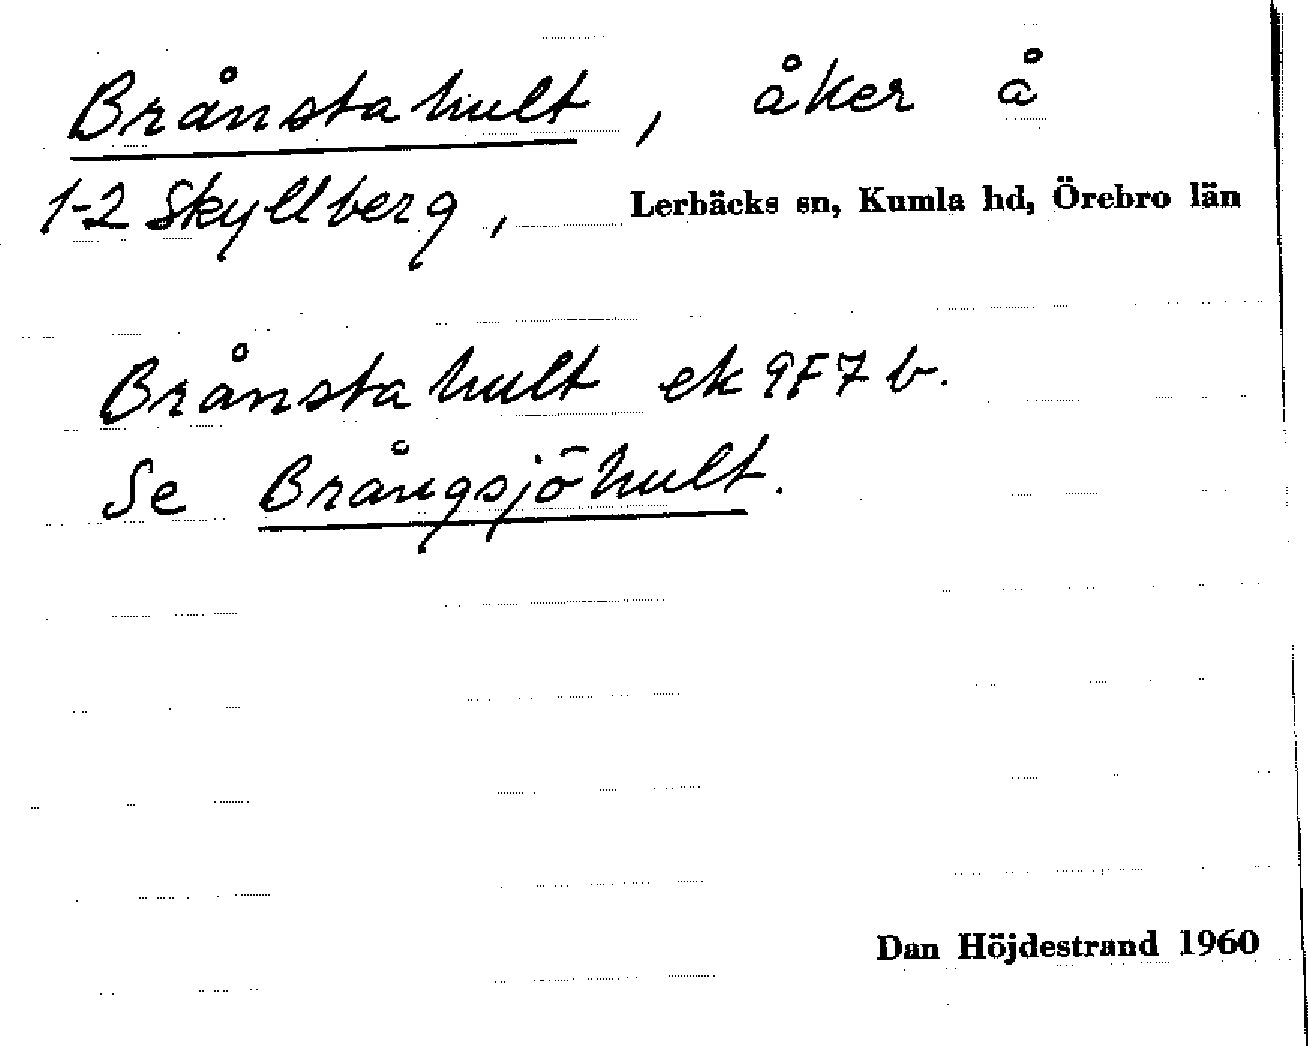 Brånstahult, åker å
1-2 Skyllberg, Lerbäcks sn, Kumla hd, Örebro län
Brånstahult ek 9F7b.
Se Brångsjöhult.
Dan Höjdestrand 1960